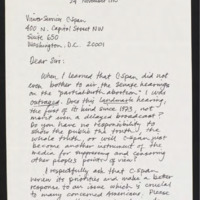 24 November 1995
Viewer Service C-Span
400 N. Capitol Street NW
Suite 650
Washington, D.C. 20001
Dear Sirs:
When I learned that C-Span did not
even bother to air the Senate hearings
on the "partial birth abortion" I was
outraged. Does this landmark hearing,
the first of its kind since 1973, not
merit even a delayed broadcast?
Do you have no responsibility to
show the public the truth, the
whole truth, or will C-Span just
become another instrument of the
media for suppressing and censoring
other people's points of view?
I respectfully ask that C-Span
review its priorities and make a better
response to an issue which is crucial
to many concerned Americans. Please